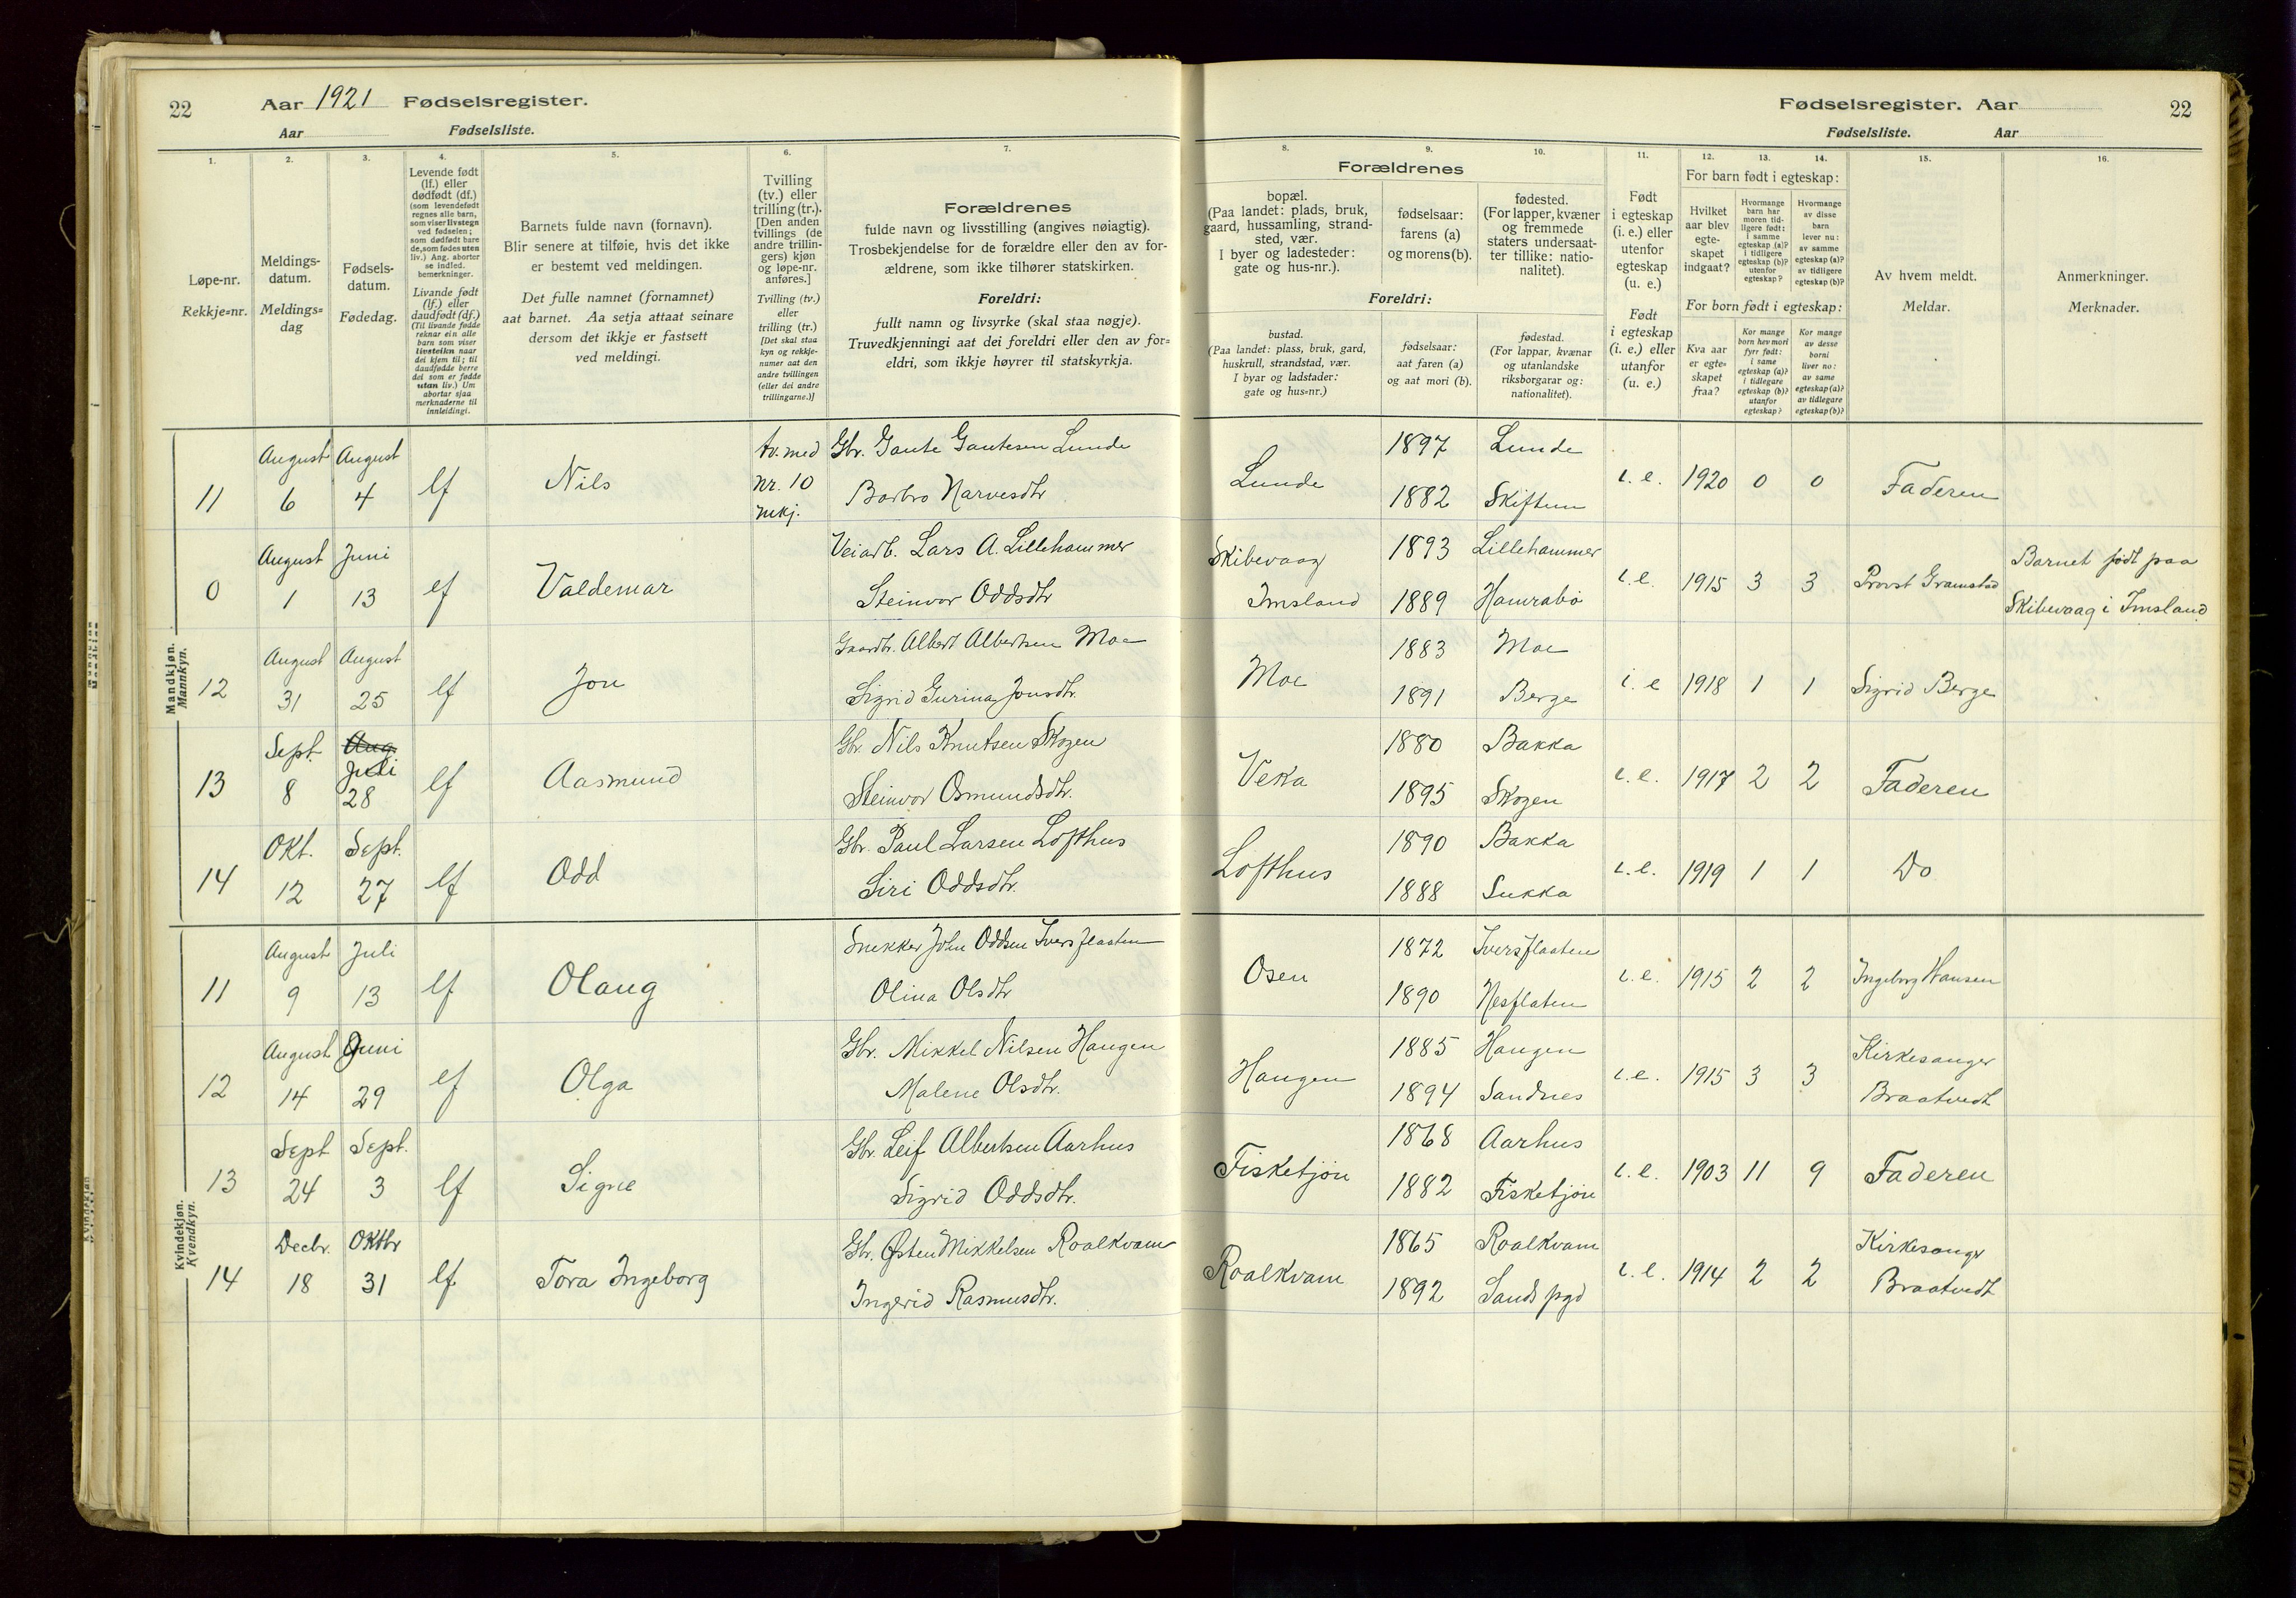 22 Aar 1921 Fødselsregister.
Aar Fødselsliste.
Fødselsregister. Aar 22
Fødselsliste. Aar
1. 2. 3. 4. 5. 6. 7. 8. 9. 10. 11. 12. 13. 14. 15. 16.
Løpe-nr.
Rekkje=nr.
Meldings-
datum.
Meldings=
dag
Fødsels-
datum.
Fødedag.
Levende født
(lf.) eller
dødfødt (df.)
(som levendefødt
regnes alle barn,
som viser livstegn
ved fødselen;
som dødfødt bare
de, som fødes uten
liv.) Ang. aborter
se indled.
bemerkninger.
Livande født
(lf.) eller
daudfødt (df.)
(Til livande fødde
reknar ein alle
barn som viser
livsteikn naar
dei kjem til; til
daudfødde berre
dei som er fødde
utan liv.) Um
abortar sjaa
merknaderne til
innleidingi.
Barnets fulde navn (fornavn).
Blir senere at tilføie, hvis det ikke
er bestemt ved meldingen.
Det fulle namnet (fornamnet)
aat barnet. Aa setja attaat seinare
dersom det ikkje er fastsett
ved meldingi.
Tvilling
(tv.) eller
trilling (tr.).
[Den anden
tvillings (de
andre trillin-
gers) kjøn
og løpe-nr.
anføres.]
Tvilling (tv.)
eller
trilling (tr.)
[Det skal staa
kyn og rekkje-
numer aat den
andre tvillingen
(eller dei andre
trillingarne.)]
Forældrenes
fulde navn og livsstilling (angives nøiagtig).
Trosbekjendelse for de forældre eller den av for-
ældrene, som ikke tilhører statskirken.
Foreldri:
fullt namn og livsyrke (skal staa nøgje).
Truvedkjenningi aat dei foreldri eller den av for=
eldri, som ikkje høyrer til statskyrkja.
Forældrenes
bopæl.
(Paa landet: plads, bruk,
gaard, hussamling, strand-
sted, vær.
I byer og ladesteder:
gate og hus-nr.).
fødselsaar:
farens (a)
og morens (b).
fødested.
(For lapper, kvæner
og fremmede
staters undersaat-
ter tillike: natio-
nalitet).
Foreldri:
bustad.
(Paa landet: plass, bruk, gard,
huskrull, strandstad, vær.
I byar og ladstader:
gate og hus=nr.)
fødselsaar:
aat faren (a)
og aat mori (b).
fødestad.
(For lappar, kvænar
og utanlandske
riksborgarar og:
nationalitet).
Født
i egteskap
(i. e.) eller
utenfor
egteskap
(u. e.)
Født
i egteskap
(i. e.) eller
utanfor
(u. e.)
For barn født i egteskap:
Hvilket
aar blev
egte-
skapet
indgaat?
Hvormange
barn har
moren tid-
ligere født:
i samme
egteskap (a)?
i tidligere
egteskap (b)?
utenfor
egteskap?
Hvormange
av disse
barn
lever nu:
av samme
egteskap (a)?
av tidligere
egteskap (b)?
For born født i egteskap:
Kva aar
er egte=
skapet
fraa?
Kor mange
born hev mori
fyrr født:
i same
egteskap (a)?
i tidlegare
egteskap (b)?
utanfor
egteskap?
Kor mange
av desse
borni
liver no:
av same
egteskap (a)?
av tidlegare
egteskap (b)?
Av hvem meldt.
Meldar.
Anmerkninger.
Merknader.
Mandkjøn.
Mannkyn.
August August tv. med Gbr. Gaute Gautesen Lunde 1897 Lunde
11 6 4 lf Nils nr. 10 Barbro Narvesdtr Lunde 1882 Skiftun i. e. 1920 0 0 Faderen
mkj.
August Juni Veiarb. Lars A. Lillehammer Skibevaag 1893 Lillehammer Barnet født paa
0 1 13 lf Valdemar Steinvor Oddsdtr Imsland 1889 Hamrabø i. e. 1915 3 3 Provst Gramstad Skibevaag i Imsland
August August Gaardbr. Albert Albertsen Moe 1883 Moe
12 31 25 lf Jon Sigrid Gurina Jonsdtr. Moe 1891 Berge i. e 1918 1 1 Sigrid Berge
Sept. Aug. Gbr. Nils Knutsen Skogen 1880 Bakka
Juli
13 8 28 lf Aasmund Steinvor Osmundsdtr. Veka 1895 Skogen i. e. 1917 2 2 Faderen
Okt. Sept. Gbr. Paul Larsen Lofthus 1890 Bakka
14 12 27 lf Odd Siri Oddsdtr. Lofthus 1888 Sukka i. e. 1919 1 1 Do
Kvindekjøn.
Kvendkyn.
August Juli Snekker John Oddsen Iversflaaten 1872 Iversflaaten
11 9 13 lf Olaug Olina Olsdtr Osen 1890 Nesflaten i. e. 1915 2 2 Ingeborg Hansen
August Juni Gbr. Mikkel Nilsen Haugen 1885 Haugen Kirkesanger
12 14 29 lf Olga Malene Olsdtr. Haugen 1894 Sandnes i. e. 1915 3 3 Braatvedt
Sept Sept. Gbr. Leif Albertsen Aarhus 1868 Aarhus
13 24 3 lf Signe Sigrid Oddsdtr. Fisketjøn 1882 Fisketjøn i. e. 1903 11 9 Faderen
Decbr. Oktbr Gbr. Østen Mikkelsen Roalkvam 1865 Roalkvam Kirkesanger
14 18 31 lf. Tora Ingeborg Ingerid Rasmusdtr. Roalkvam 1892 Sands pgd i. e. 1914 2 2 Braatvedt